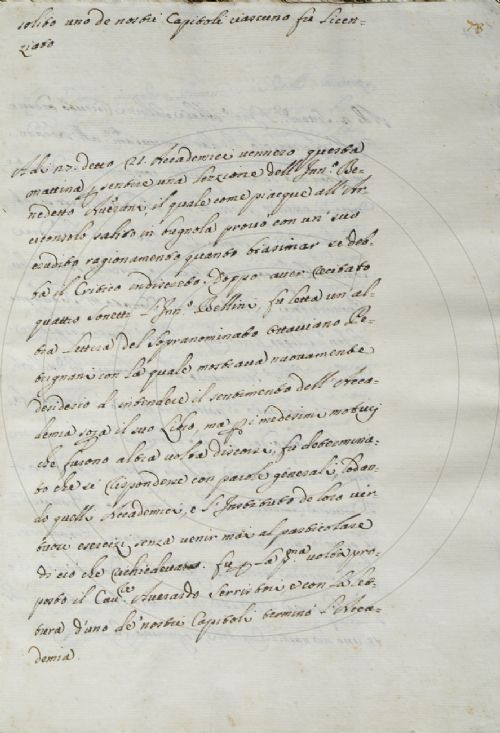 solito uno de nostri Capitoli ciascuno fu licen-
ziato
78
Adi 27. detto 21. Accademici vennero questa
mattina p sentire una lezzione dell' Inn.º Be-
nedetto Averani, il quale come piacque all' Ar
ciconsolo salito in bugnola provò con un' suo
erudito ragionamento quanto biasimar si deb-
ba il Critico indiscreto. Doppo aver recitato
quattro sonetti l'Inn.º Bellini fu letta un' al-
tra lettera del sopranominato Ottaviano Pe-
trignani con la quale mostrava nuovamente
desiderio d'intendere il sentimento dell' Acca-
demia sopra il suo libro, ma p i medesimi motivi
che furono altra volta discorsi, fu determina-
to che se rispondesse con parole generali, lodan-
do quelli Accademici, e l'Instituto de loro vir
tuosi esercizi senza venir mai al particolare
di ciò che richiedeva. fu p la p.ma volta pro-
posto il Cav.re Averardo Serristori e con la let-
tura d'uno de' nostri Capitoli terminò l'Acca-
demia.